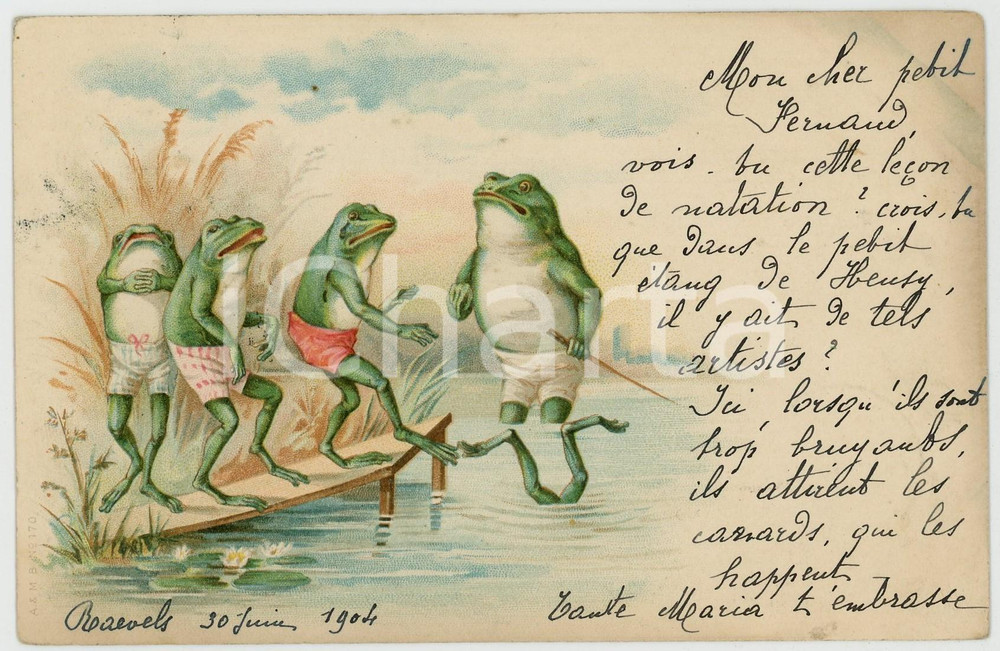 Mon cher petit
Fernand,
vois-tu cette leçon
de natation ? crois-tu
que dans le petit
étang de Heusy,
il y ait de tels
artistes ?
Ici, lorsqu'ils sont
trop bruyants,
ils attirent les
canards, qui les
happent
Tante Maria t'embrasse
Raevels 30 Juin 1904
iCharta
A & M B